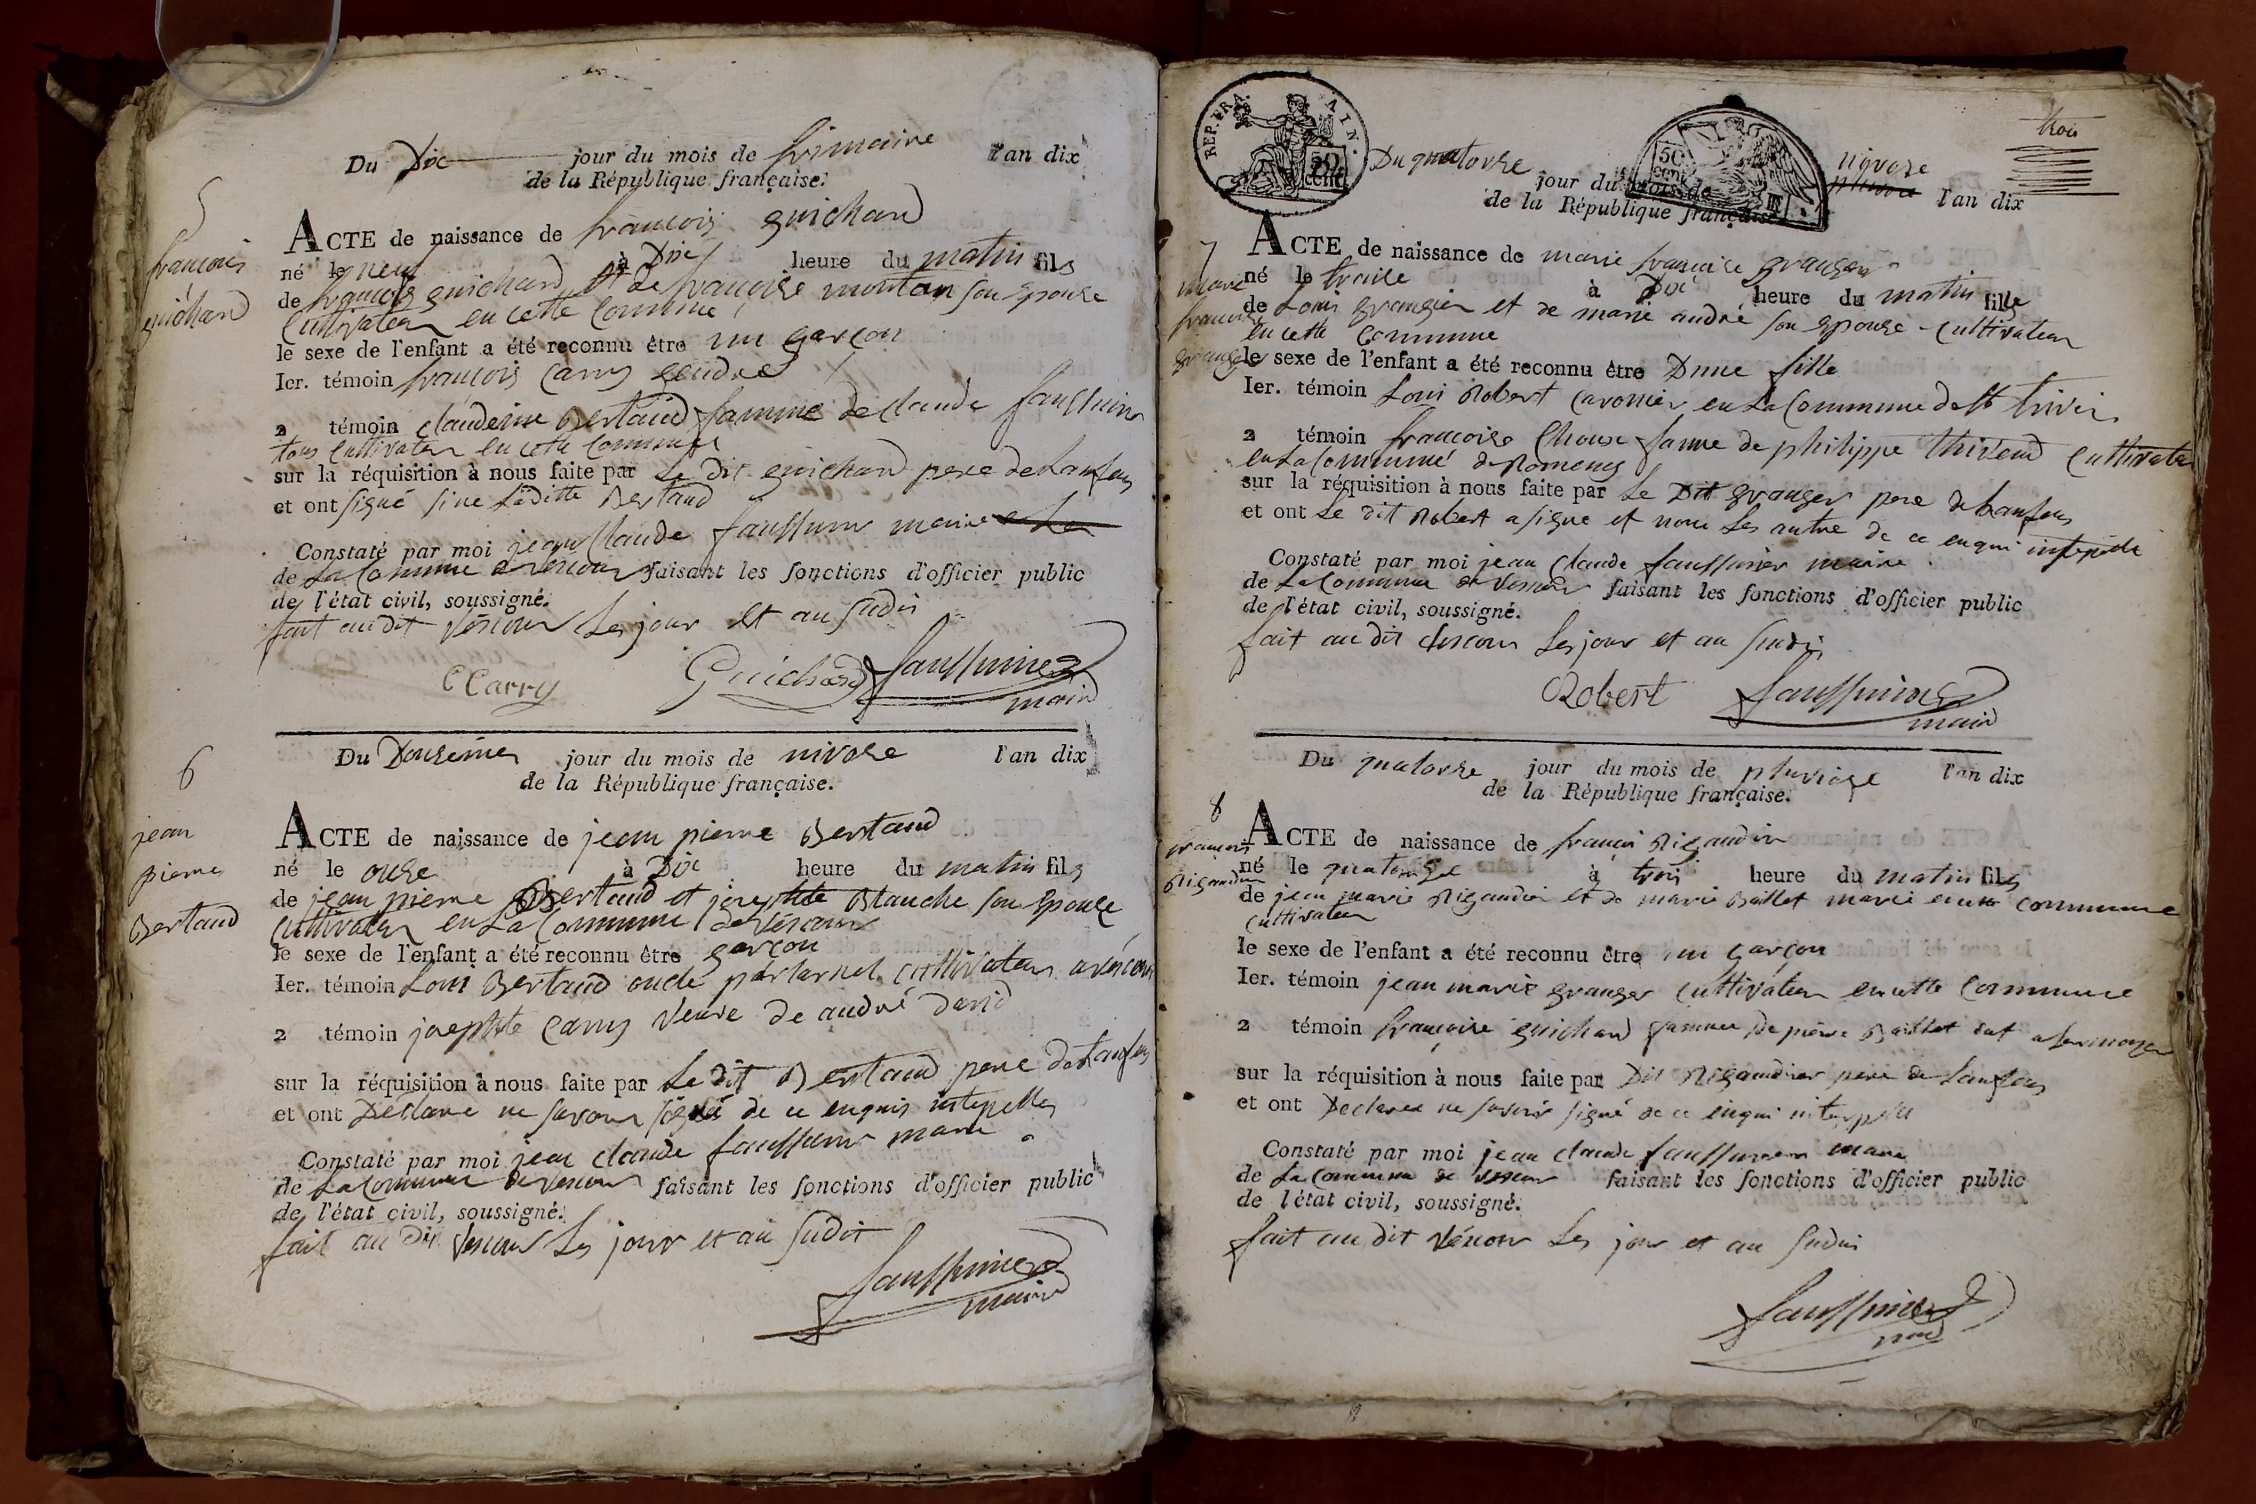 Du Dix jour du mois de frimaire l'an dix
de la République française.
5
françois
guichard
ACTE de naissance de françois guichard
né le neuf à Dix heure du matin fils
de françois guichard et de françoise montan son epouse
Cultivateur en cette Commune
le sexe de l'enfant a été reconnu être un garçon
Ier. témoin françois Carry gendre
2 témoin claudeine Bertaud famme de claude
tous Cultivateur en cette Commune
sur la réquisition à nous faite par Le dit guichard pere de Lanfens
et ont signé sine Laditte Bertaud
Constaté par moi jean Claude faussurier maire
de La Commune de vescour faisant les fonctions d'officier public
de l'état civil, soussigné.
fait au dit vescour Les jour et an sudis
CCarry Guichard faussurier
maire
6
jean
pierre
Bertaud
Du Douzeime jour du mois de nivose l'an dix
de la République française.
ACTE de naissance de jean pierre Bertaud
né le onze à Dix heure du matin fils
de jean pierre Bertaud et josephte Blanche son Epouse
Cultivateur en La Commune de Vescour
le sexe de l'enfant a été reconnu être garçon
Ier. témoin Loui Bertaud oncle parternel Cultivateur a vescour
2 témoin josephte Carry veuve de andré david
sur la réquisition à nous faite par Le dit Bertaud pere de Lanfens
et ont Déclaré ne savoir signé de ce enquis intepelles
Constaté par moi jean claude faussurier maire
de La Commune de vescour faisant les fonctions d'officier public
de l'état civil, soussigné.
fait au Dit vescour Les jour et an sudit
faussurier
maire
trois
REP. FRA. AIN.
50 cent.
50 cent.
Du quatorze jour du mois de nivose l'an dix
de la République française
7
marie
françoise
granger
ACTE de naissance de marie françoise granger
né le traise à Dix heure du matin fille
de Louis granger et de marie andré son epouse Cultivateur
en cette Commune
le sexe de l'enfant a été reconnu être Dune fille
Ier. témoin Loui Robert en La Commune de St trivi
2 témoin françoise Choux famme de philippe Cultivateur
en La Commune de Romenay
sur la réquisition à nous faite par Le Dit granger pere de Lanfens
et ont Le dit Robert a signe et non Les autre de ce enqui intepele
Constaté par moi jean Claude faussurier maire
de La Commune de vescour faisant les fonctions d'officier public
de l'état civil, soussigné.
fait au dit vescour Les jour et an sudis
Robert faussurier
maire
Du quatorze jour du mois de pluviose l'an dix
de la République française.
8
françois
Rigaudier
ACTE de naissance de françoi Rigaudier
né le quatorze à trois heure du matin fils
de jean marie Rigaudier et de marie Baillet Commune
Cultivateur
le sexe de l'enfant a été reconnu être un garçon
Ier. témoin jean marie granger Cultivateur en cette Commune
2 témoin françoise guichard famme de pierre Baillet
sur la réquisition à nous faite par Dit Rigaudier pere de Lanfens
et ont Declaree ne savoir signé de ce enqui interpelé
Constaté par moi jean claude faussurier maire
de La Commune de vescour faisant les fonctions d'officier public
de l'état civil, soussigné.
fait au dit vescour Les jour et an sudis
faussurier
maire